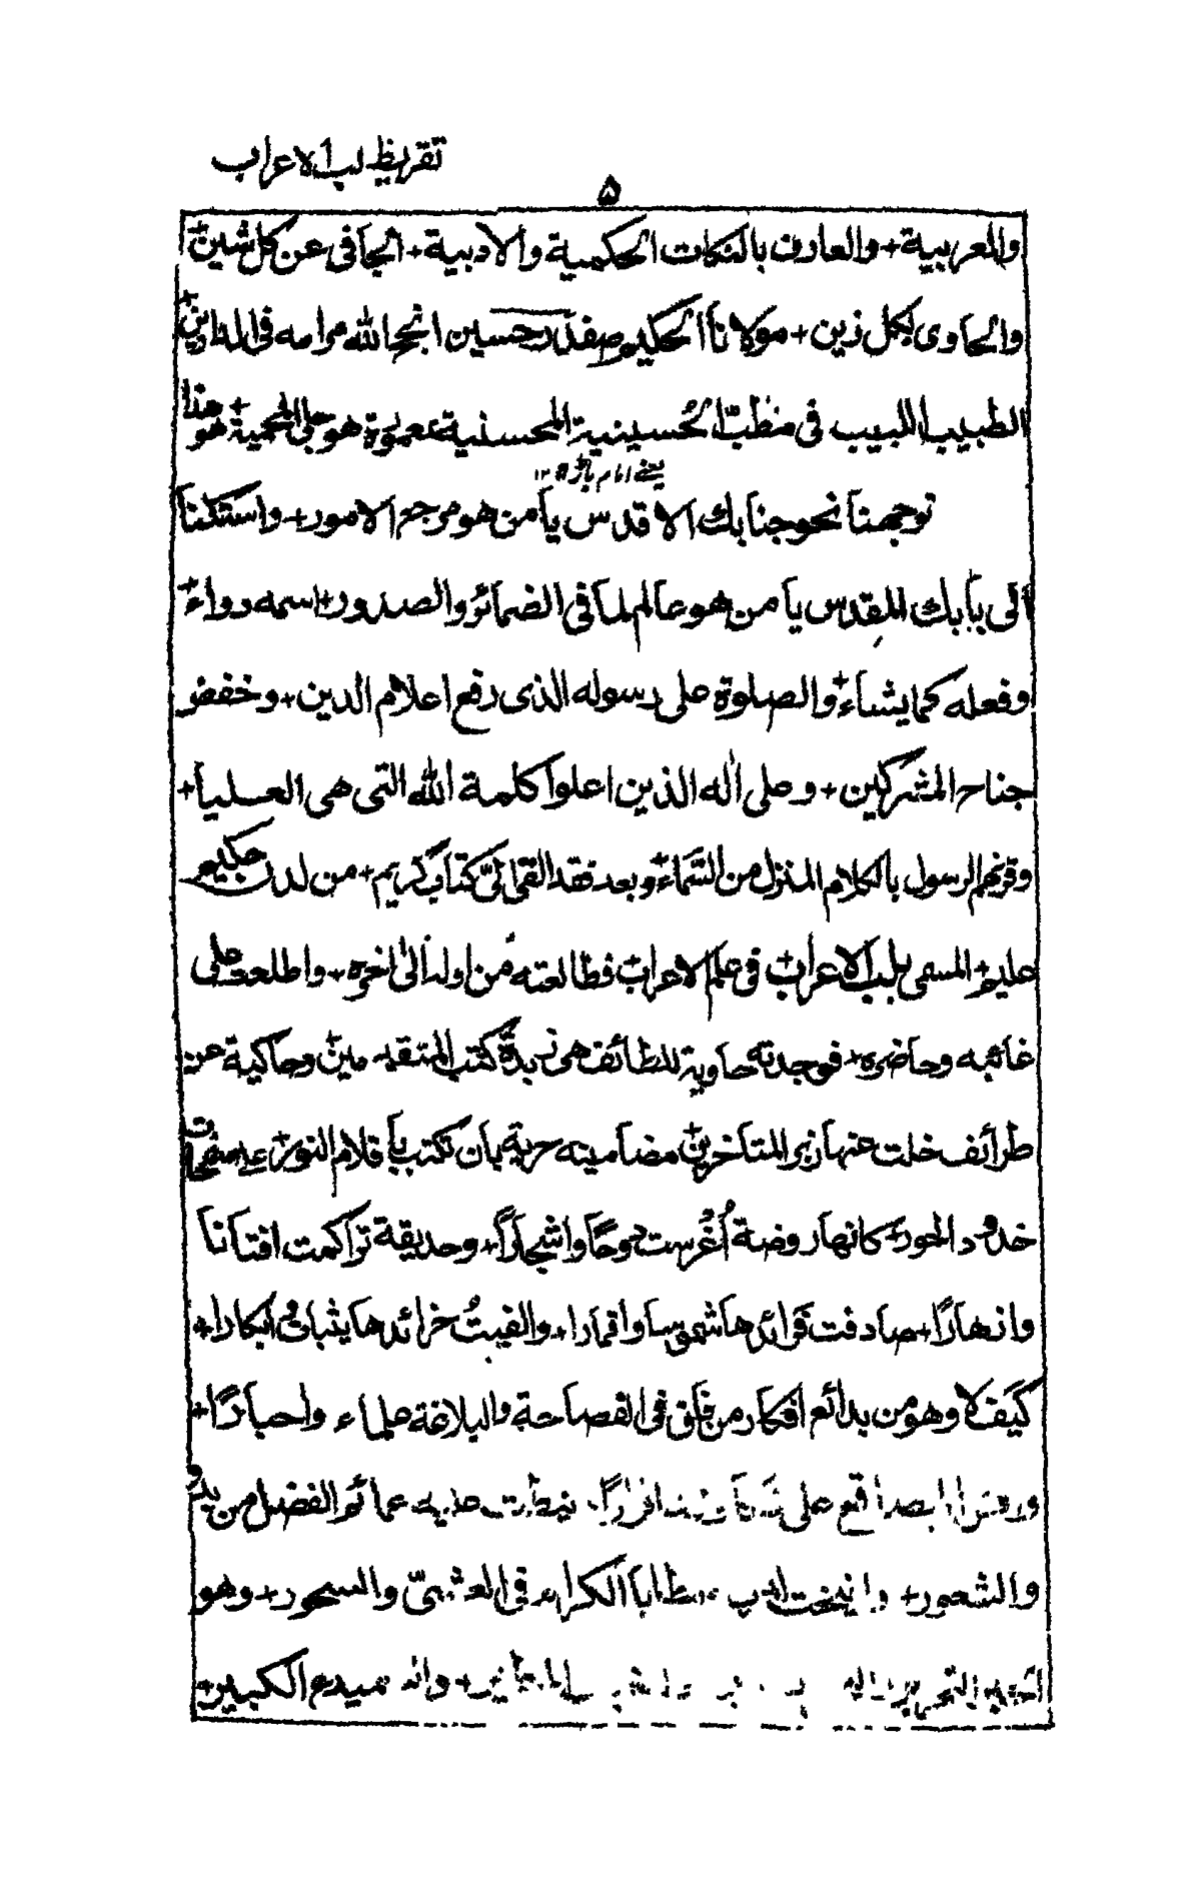 تقريظ لب الاعراب
۵
والعربية+ والعارف بالنكات الحكمية والادبية+ الجافى عن كل شين+
والحاوى لكل زين+ مولانا الحكيم صفدر حسين انجح الله مرامه فى الدارين+
الطبيب اللبيب فى مطب الحسينية المحسنية هو هذا
يعنے امام باڑه ۱۲
توجهنا نحو جنابك الاقدس يا من هو مرجع الامور+ واستكنا
الى بابك المقدس يا من هو عالم لما فى الضمائر والصدور+ اسمه دواء+
وفعله كما يشاء+ والصلوة على رسوله الذى رفع اعلام الدين+ وخفض
جناح المشركين+ وعلى اٰله الذين اعلوا كلمة الله التى هى العليا+
وقرنهم الرسول بالكلام المنزل من السماء+ وبعد فقد القى الىّ كتاب كريم+ من لدن حكيم
عليم+ المسمى بلب الاعراب+ فى علم الاعراب+ فطالعته من اوله الى اٰخره+ واطلعت على
غائبه وحاضره+ فوجدته حاوية للطائف هى زبدة كتب المتقدمين+ وحاكية عن
طرائف خلت عنها زبر المتاخرين+ مضامينه حرية بان تكتب باقلام النور+ على صفحات
خدود الحور+ كانها روضة اُغرست دوحا واشجارًا+ وحديقة تراكمت افنانا
وانهارًا+ صادفت فرائدها شموسا واقمارا+ والفيتُ خرائدها ابكارا+
كيف لا وهو من بدائع افكار من فاق فى الفصاحة والبلاغة علماء واحبارًا+
على عليه عمائم الفضل من بدو
والشعور+ الكرام فى العشىّ والسحور+ وهو
التحرير وانه الكبير+